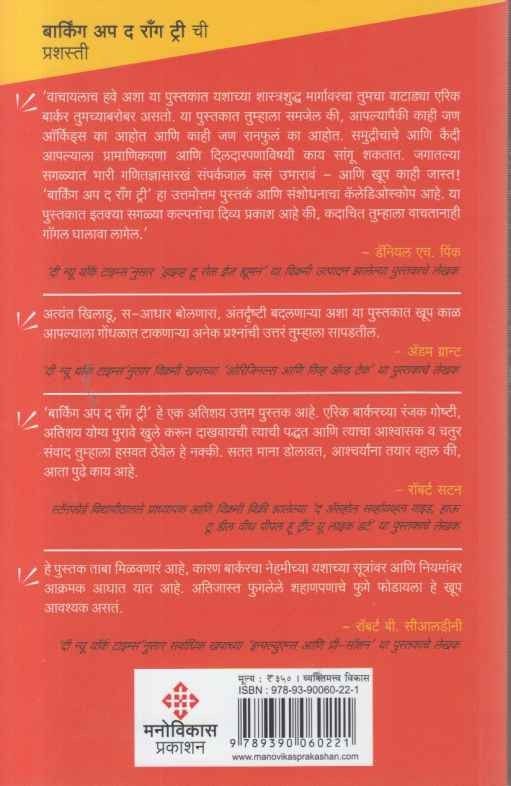 बार्किंग अप द राँग ट्री ची
प्रशस्ती
'वाचायलाच हवे अशा या पुस्तकात यशाच्या शास्त्रशुद्ध मार्गावरचा तुमचा वाटाड्या एरिक
बार्कर तुमच्याबरोबर असतो. या पुस्तकात तुम्हाला समजेल की, आपल्यापैकी काही जण
ऑर्किड्स का आहोत आणि काही जण रानफुलं का आहोत. समुद्रीचाचे आणि कैदी
आपल्याला प्रामाणिकपणा आणि दिलदारपणाविषयी काय सांगू शकतात. जगातल्या
सगळ्यात भारी गणितज्ञासारखं संपर्कजाल कसं उभारावं – आणि खूप काही जास्त!
'बार्किंग अप द राँग ट्री' हा उत्तमोत्तम पुस्तकं आणि संशोधनाचा कॅलेडिओस्कोप आहे. या
पुस्तकात इतक्या सगळ्या कल्पनांचा दिव्य प्रकाश आहे की, कदाचित तुम्हाला वाचतानाही
गॉगल घालावा लागेल.'
– डॅनियल एच. पिंक
'दी न्यू यॉर्क टाइम्स'नुसार 'ड्राइव्ह टू सेल इज ह्यूमन' या विक्रमी उत्पादन झालेल्या पुस्तकाचे लेखक
अत्यंत खिलाडू, स-आधार बोलणारा, अंतर्दृष्टी बदलणाऱ्या अशा या पुस्तकात खूप काळ
आपल्याला गोंधळात टाकणाऱ्या अनेक प्रश्नांची उत्तरं तुम्हाला सापडतील.
– अ‍ॅडम ग्रान्ट
'दी न्यू यॉर्क टाइम्स'नुसार विक्रमी खपाच्या 'ओरिजिनल्स आणि गिव्ह अ‍ॅन्ड टेक' या पुस्तकाचे लेखक
'बार्किंग अप द राँग ट्री' हे एक अतिशय उत्तम पुस्तक आहे. एरिक बार्करच्या रंजक गोष्टी,
अतिशय योग्य पुरावे खुले करून दाखवायची त्याची पद्धत आणि त्याचा आश्वासक व चतुर
संवाद तुम्हाला हसवत ठेवेल हे नक्की. सतत माना डोलावत, आश्चर्यांना तयार व्हाल की,
आता पुढे काय आहे.
– रॉबर्ट सटन
स्टॅनफोर्ड विद्यापीठातले प्राध्यापक आणि विक्रमी विक्री झालेल्या 'द अ‍ॅसहोल सर्व्हायव्हल गाइड, हाऊ
टू डील वीथ पीपल हू ट्रीट यू लाइक डर्ट' या पुस्तकाचे लेखक
हे पुस्तक ताबा मिळवणारं आहे, कारण बार्करचा नेहमीच्या यशाच्या सूत्रांवर आणि नियमांवर
आक्रमक आघात यात आहे. अतिजास्त फुगलेले शहाणपणाचे फुगे फोडायला हे खूप
आवश्यक असतं.
– रॉबर्ट बी. सीआलडीनी
'दी न्यू यॉर्क टाइम्स'नुसार सर्वाधिक खपाच्या 'इन्फ्ल्युएन्स आणि प्री-सॉशन' या पुस्तकाचे लेखक
मूल्य : ₹ ३५० । व्यक्तिमत्त्व विकास
ISBN : 978-93-90060-22-1
मनोविकास
प्रकाशन
9 789390 060221
www.manovikasprakashan.com